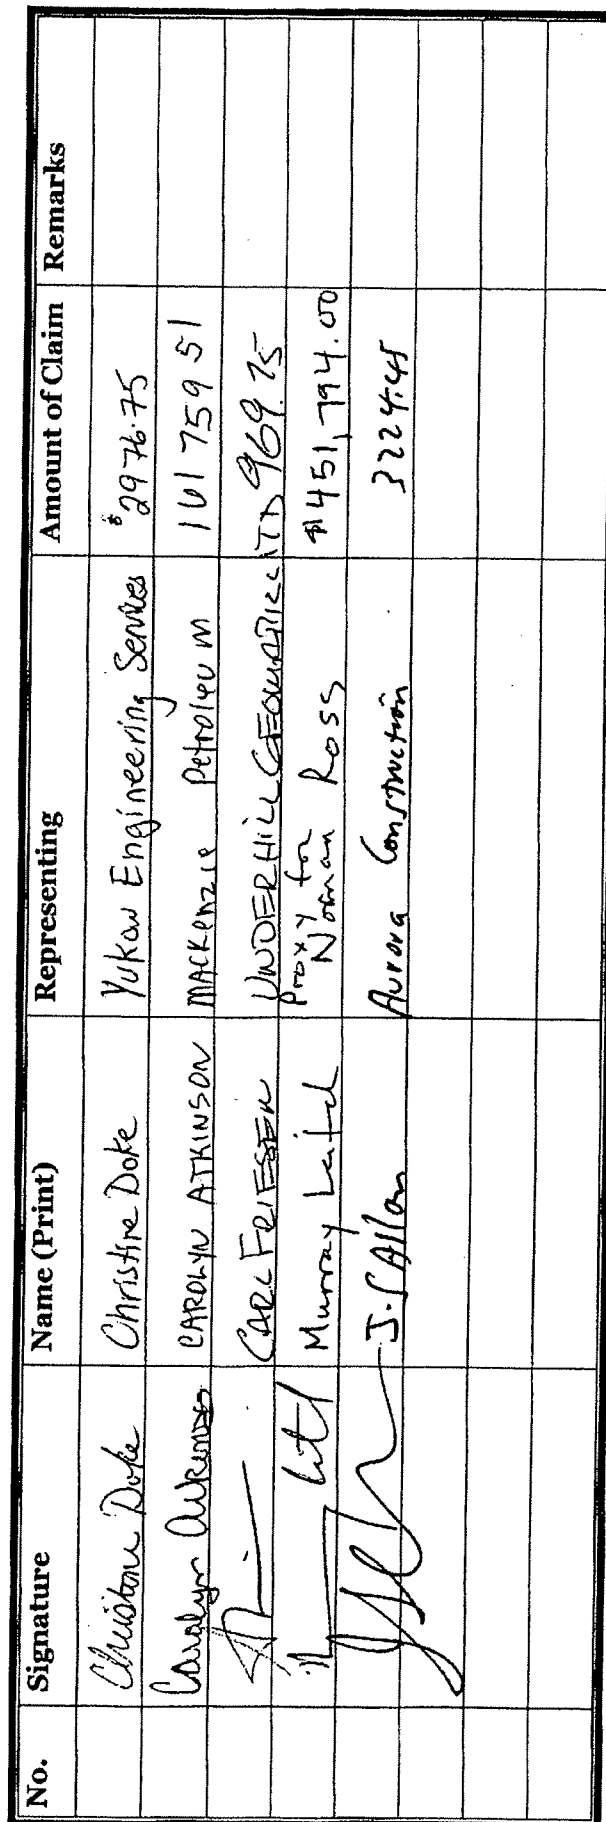 No. Signature Name (Print) Representing Amount of Claim Remarks
Christine Doke Christine Doke Yukon Engineering Services $2976.75
Carolyn Atkinson CAROLYN ATKINSON MACKENZIE Petroleum 101 759 51
CARL FRIESEN UNDERHILL GEOMATICS LTD 969.75
Murray Leitch Proxy for
Norman Ross $451,794.00
J. S Allan Aurora Construction 3224.45